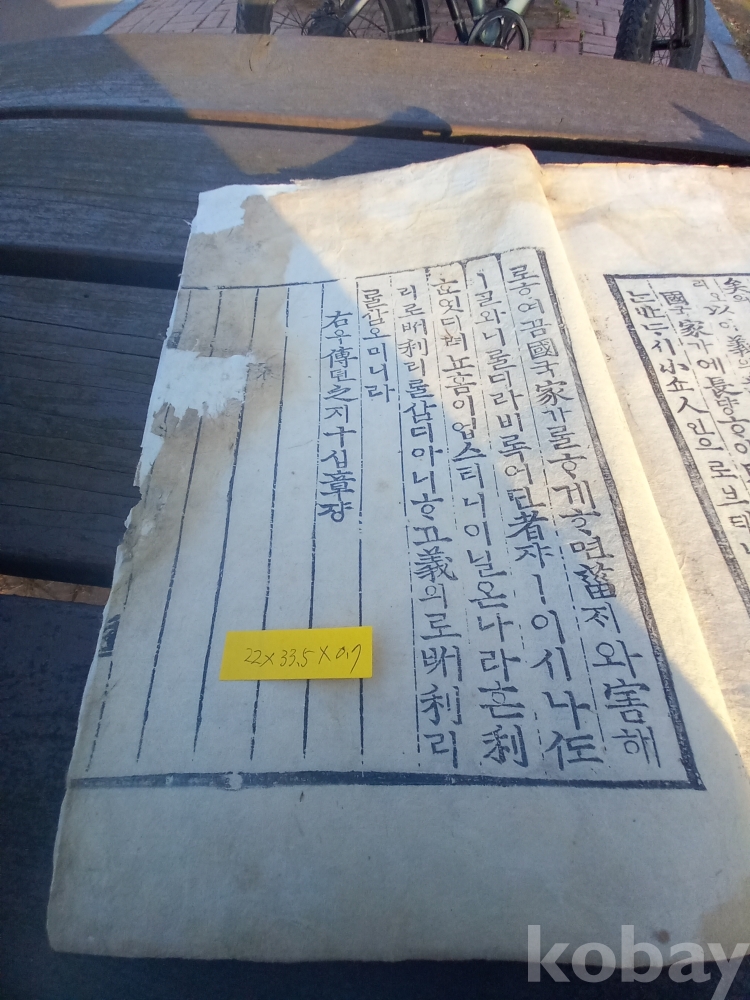 矣의
國국家가에長댱ᄒᆞ야
ᄂᆞᆫ반ᄃᆞ시小쇼人인으로브터
로ᄒᆞ여곰國국家가ᄅᆞᆯᄒᆞ게ᄒᆞ면菑ᄌᆡ와害해
ㅣ골와니를디라비록어딘者쟈ㅣ이시나ᄯᅩ
ᄒᆞᆫ엇디려뇨홈이업스리니이닐온나라ᄒᆞᆫ利
리로ᄡᅥ利리ᄅᆞᆯ삼디아니ᄒᆞ고義의로ᄡᅥ利리
ᄅᆞᆯ삼오미니라
右우傳뎐之지十십章쟝
22×33.5×0.7
kobay